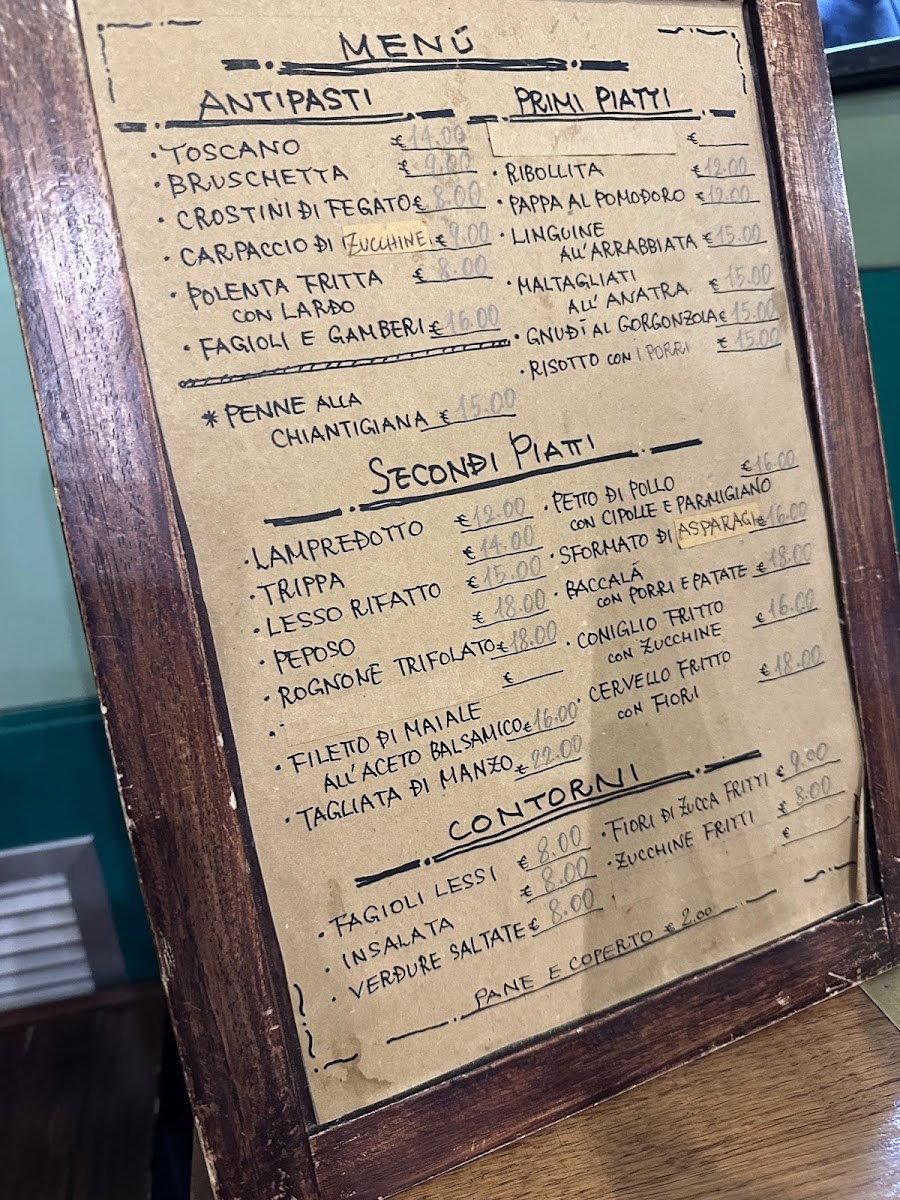 MENÚ
ANTIPASTI
• TOSCANO € 14.00
• BRUSCHETTA € 9.00
• CROSTINI DI FEGATO € 8.00
• CARPACCIO DI ZUCCHINE € 9.00
• POLENTA FRITTA € 8.00
CON LARDO
• FAGIOLI E GAMBERI € 16.00
* PENNE ALLA
CHIANTIGIANA € 15.00
PRIMI PIATTI
€
• RIBOLLITA € 12.00
• PAPPA AL POMODORO € 12.00
• LINGUINE
ALL'ARRABBIATA € 15.00
• MALTAGLIATI
ALL'ANATRA € 15.00
• GNUDI AL GORGONZOLA € 15.00
• RISOTTO CON I PORRI € 15.00
SECONDI PIATTI
• LAMPREDOTTO € 12.00
• TRIPPA € 14.00
• LESSO RIFATTO € 15.00
• PEPOSO € 18.00
• ROGNONE TRIFOLATO € 18.00
• €
• FILETTO DI MAIALE
ALL'ACETO BALSAMICO € 16.00
• TAGLIATA DI MANZO € 22.00
• PETTO DI POLLO € 16.00
CON CIPOLLE E PARMIGIANO
• SFORMATO DI ASPARAGI € 16.00
• BACCALÁ
CON PORRI E PATATE € 18.00
• CONIGLIO FRITTO € 16.00
CON ZUCCHINE
• CERVELLO FRITTO € 18.00
CON FIORI
CONTORNI
• FAGIOLI LESSI € 8.00
• INSALATA € 8.00
• VERDURE SALTATE € 8.00
• FIORI DI ZUCCA FRITTI € 9.00
• ZUCCHINE FRITTI € 8.00
• €
PANE E COPERTO € 2.00